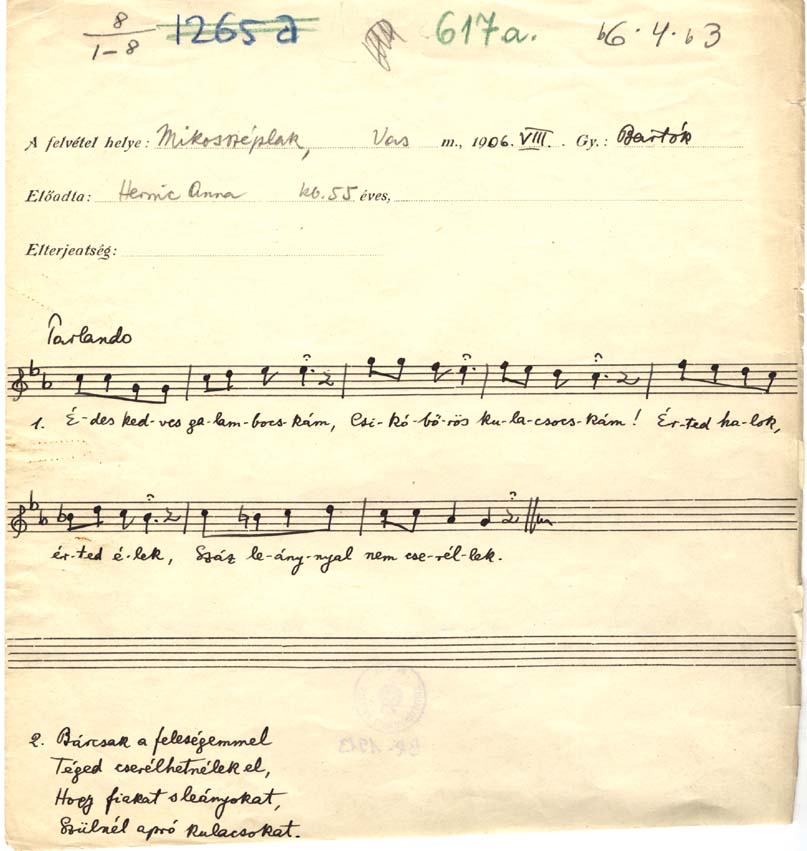 8
1-8
1265a
617a.
b6·4·b3
A felvétel helye: Mikosszéplak, Vas m., 1906. VIII. Gy.: Bartók
Előadta: Hernic Anna kb. 55 éves,
Elterjedtség:
Parlando
1. É-des ked-ves ga-lam-bocs-kám, Csi-kó-bő-rös ku-la-csocs-kám! Ér-ted ha-lok,
ér-ted é-lek, Száz le-ány-nyal nem cse-rél-lek.
2. Bárcsak a feleségemmel
Téged cserélhetnélek el,
Hogy fiakat s leányokat,
Szülnél apró kulacsokat.